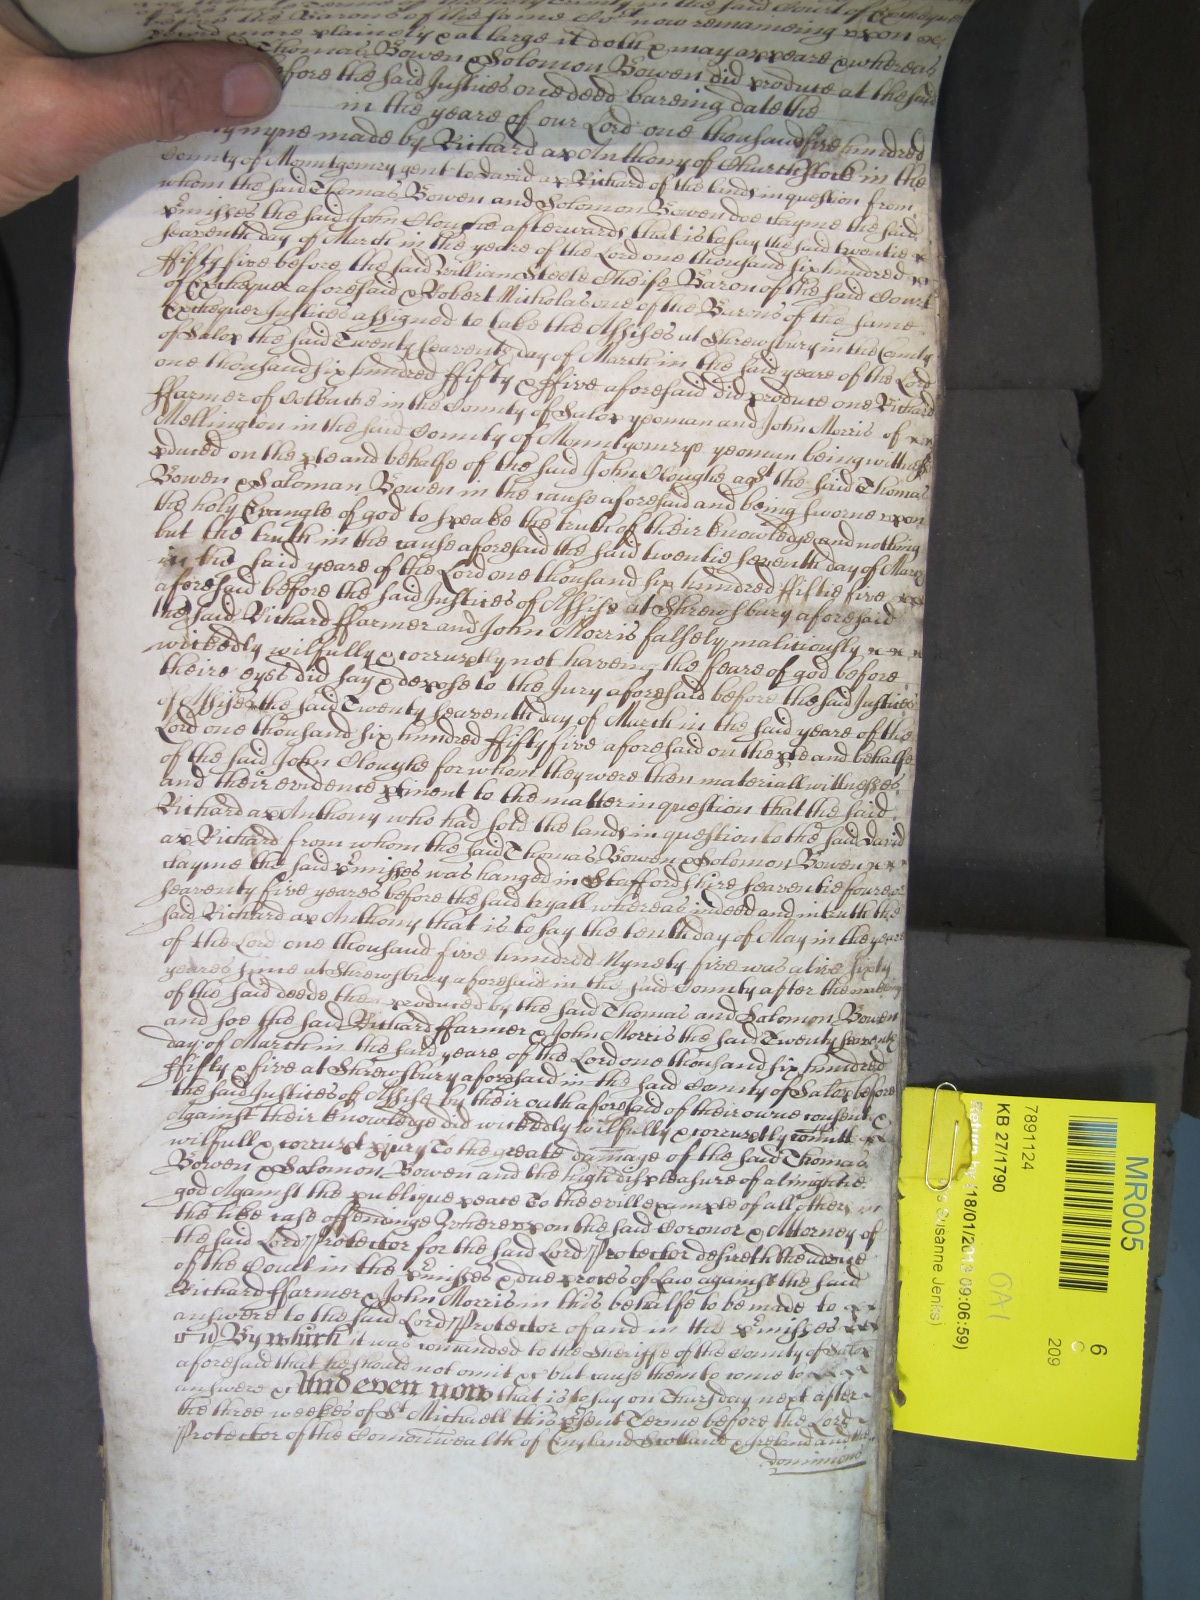 in the said Court of Exchequer
before the Barons of the same Co:rt now remaineing upon
Record more plainely & at large it doth & may appeare & whereas
Thomas Bowen & Solomon Bowen did produce at the said
before the said Justices one deed bareing date the
in the yeare of our Lord one thousand five hundred
nyne made by Richard ap Anthony of Church Stock in the
County of Mountgomry gent to david ap Richard of the lands in question from
whom the said Thomas Bowen and Solomon Bowen doe clayme the said
p:rmisses the said John Cloughe afterwards that is to say the said twentie
seaventh day of March in the yeare of the Lord one thousand six hundred
ffifty five before the said William Steele Cheife Baron of the said Court
of Exchequer aforesaid & Robert Nicholas one of the Barons of the same
Exchequer Justices assigned to take the Assises at Shrewsbury in the County
of Salop the said Twenty seaventh day of March in the said yeare of the Lord
one thousand six hundred ffifty & ffive aforesaid did produce one Richard
ffarmer of Colbatche in the County of Salop yeoman and John Morris of
Mellington in the said County of Mountgomrye yeoman being wittnesses
pduced on the pte and behalfe of the said John Cloughe ag:st the said Thomas
Bowen & Saloman Bowen in the cause aforesaid and being sworne upon
the holy Evangle of god to speake the truth of their knowledge and nothing
but the truth in the cause aforesaid the said twentie seventh day of March
in the said yeare of the Lord one thousand six hundred ffiftie five
aforesaid before the said Justices of Assise at Shrewsbury aforesaid
the said Richard ffarmer and John Morris falsely malitiously
wickedly wilfully & corruptly not haveing the feare of god before
theire eyes did say & depose to the Jury aforesaid before the said Justices
of Assises the said Twenty seaventh day of March in the said yeare of the
Lord one thousand six hundred ffifty five aforesaid on the pte and behalfe
of the said John Cloughe for whom they were then materiall wittnesses
and their evidence ptinent to the matter in question that the said
Richard ap Anthony who had sold the lands in question to the said david
ap Richard from whom the said Thomas Bowen & Solomon Bowen
clayme the said p:rmisses was hanged in Staffordshire seaventie foure or
seaventy five yeares before the said tryall whereas indeed and in truth the
said Richard ap Anthony that is to say the tenth day of May in the yeare
of the Lord one thousand five hundred Nynety five was alive sixty
yeares since at Shrewsbury aforesaid in the said County after the makeing
of the said deede then produced by the said Thomas and Salomon Bowen
and soe the said Richard ffarmer & John Morris the said Twenty seventh
day of March in the said yeare of the Lord one thousand six hundred
ffifty & five at Shrewsbury aforesaid in the said County of Salop before
the said Justices of Assise by their oath aforesaid of their owne consent &
Against their knowledge did wickedly wilfully & corruptly comitt
wilfull & corrupt pjury To the greate damage of the said Thomas
Bowen & Solomon Bowen and the high displeasure of almightie
god Against the publique peace To the evill example of all others in
the like case offendinge Whereupon the said Coronor & Attorney of
the said Lord Protector for the said Lord Protector desireth the advice
of the Court in the p:rmisses & due proces of Law against the said
Richard ffarmer & John Morris in this behalfe to be made to
answere to the said Lord Protector of and in the p:rmisses
By which it was comanded to the Sheriffe of the County of Salop
aforesaid that he should not omit &c but cause them to come to
answere &c And even now that is to say on Thursday next after
the three weekes of S:t Michaell this p:rsent Terme before the Lord
Protector of the Comonwealth of England Scotland & Ireland and the
dominions
MR005
7891124
KB 27/1790
6
C
209
OA1
Return by (18/01/2013 09:06:59)
Susanne Jenks)